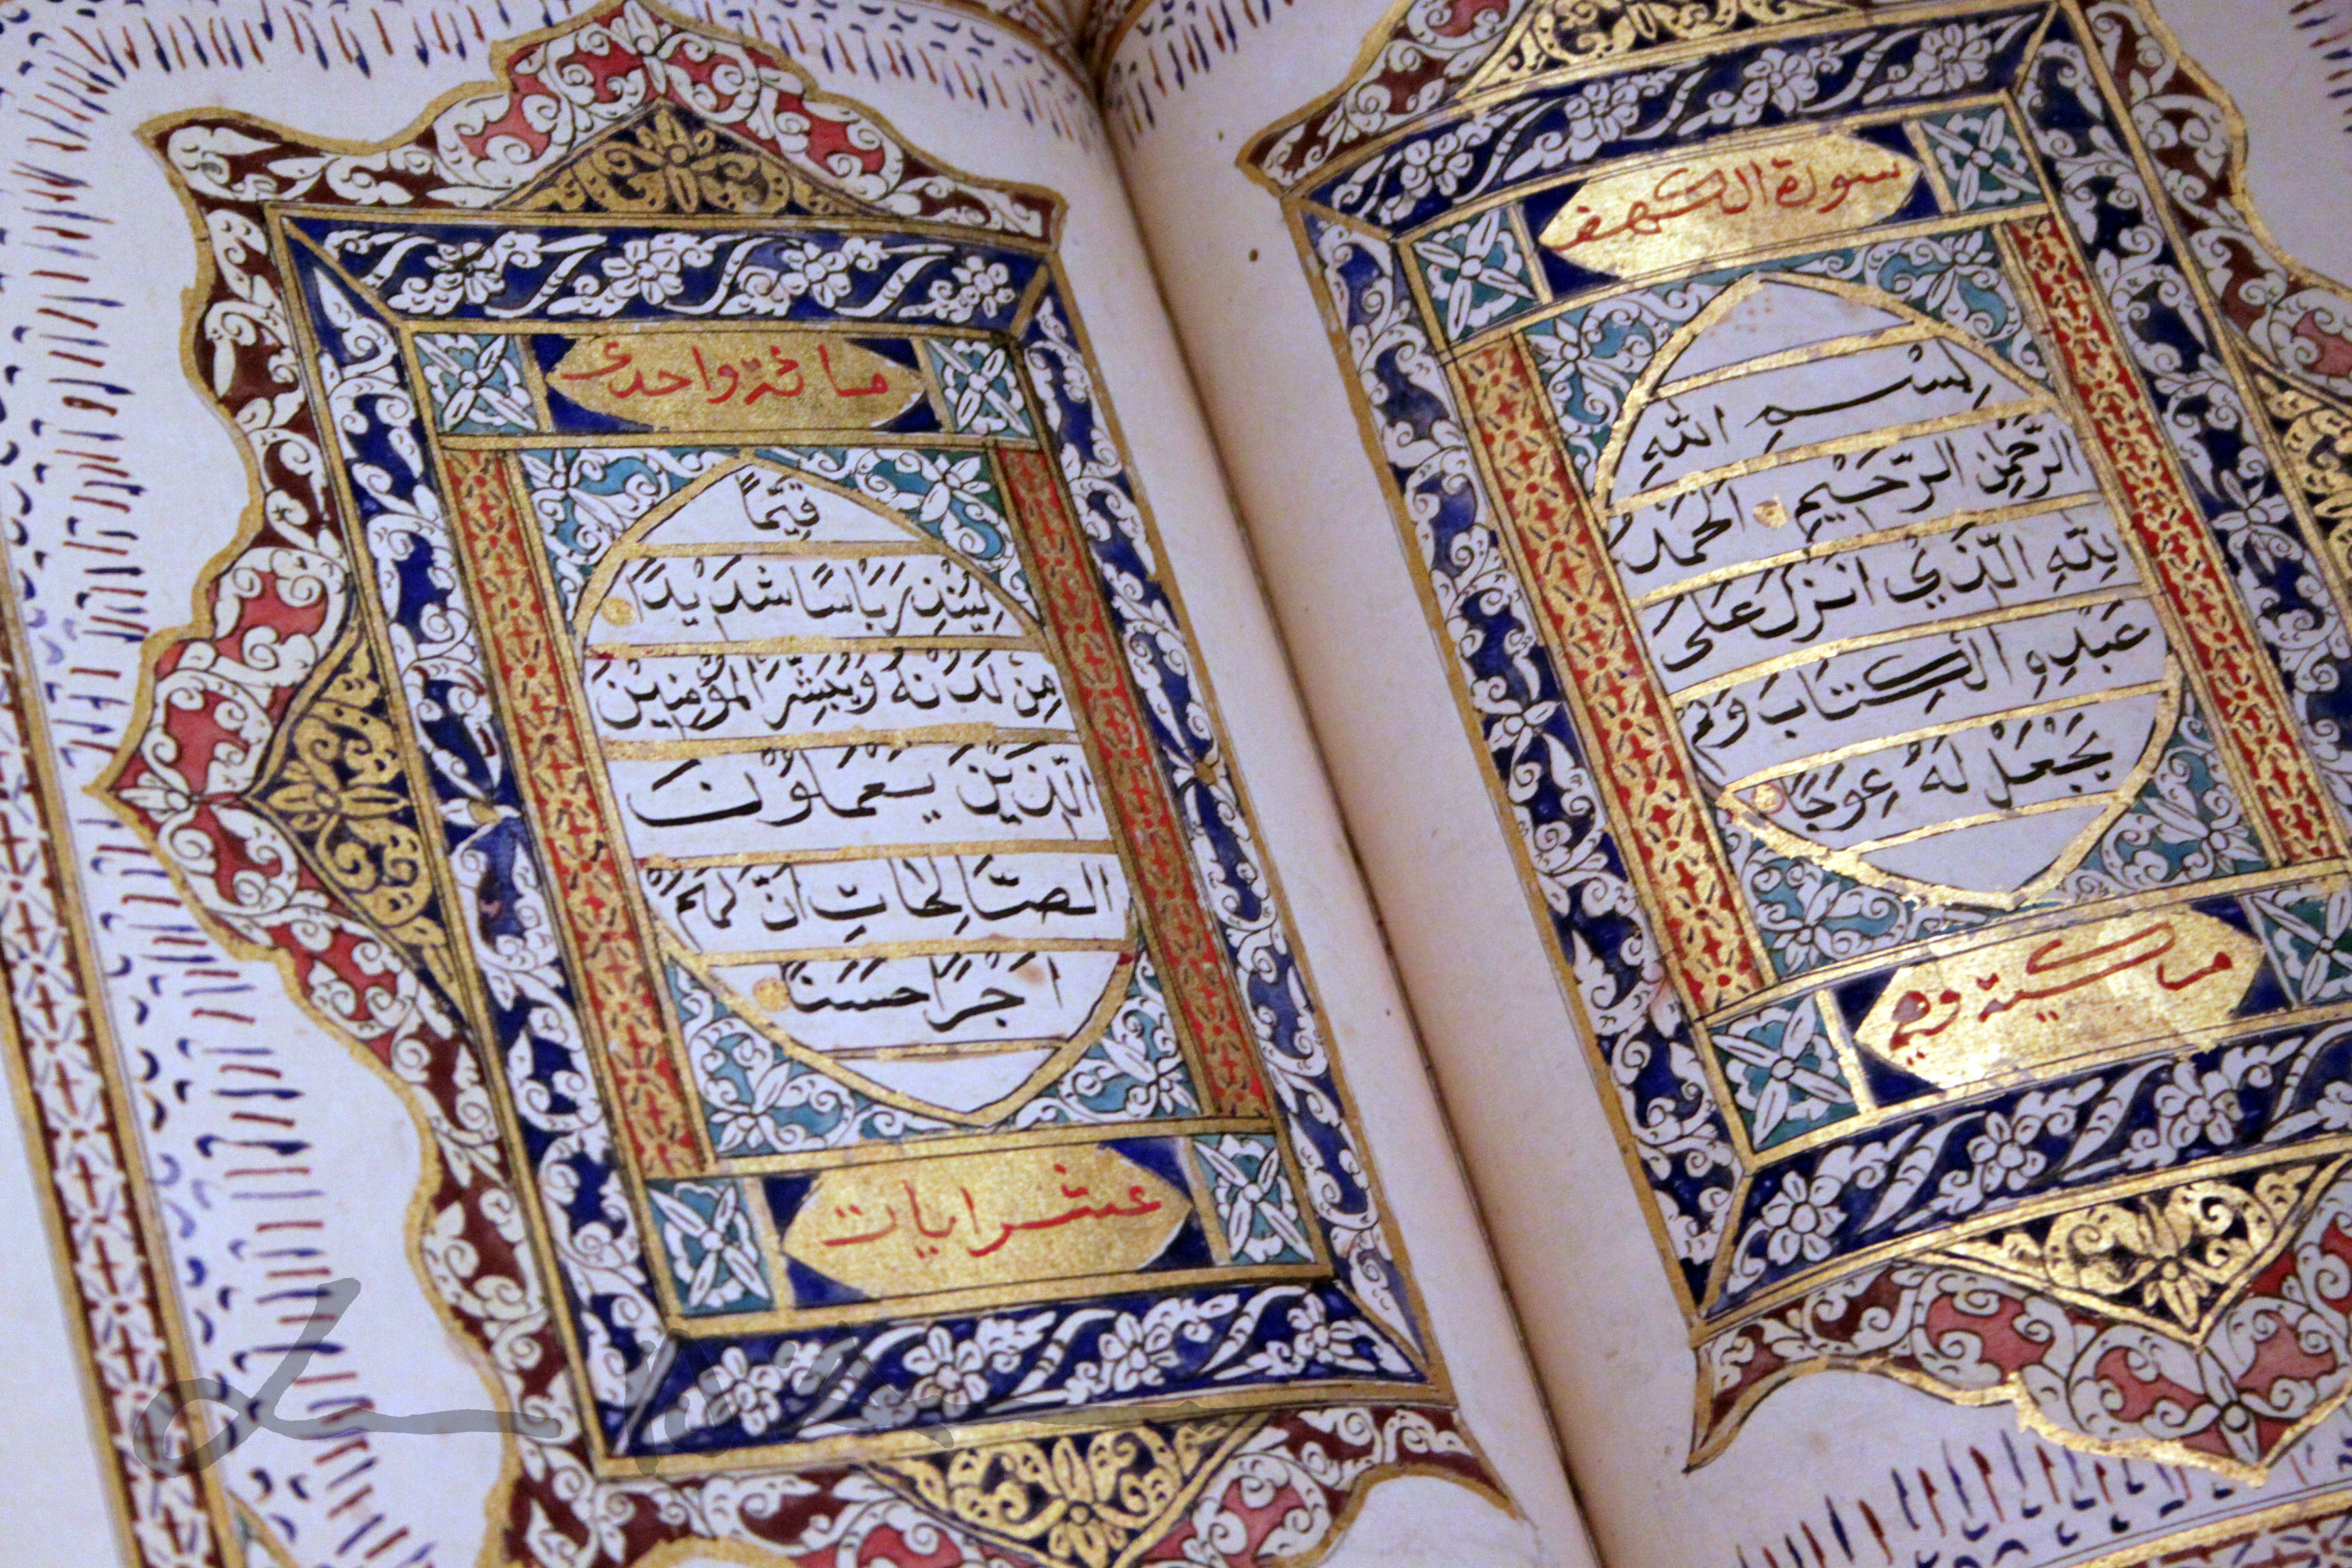 سورة الكهف
بِسْمِ اللّٰهِ
الرَّحْمٰنِ الرَّحِيْمِ الْحَمْدُ
لِلّٰهِ الَّذِيْ اَنْزَلَ عَلٰى
عَبْدِهِ الْكِتَابَ وَلَمْ
يَجْعَلْ لَهُ عِوَجًا
مكية وهي
مائة واحدى
قَيِّمًا
لِيُنْذِرَ بَاْسًا شَدِيْدًا
مِنْ لَدُنْهُ وَيُبَشِّرَ الْمُؤْمِنِيْنَ
الَّذِيْنَ يَعْمَلُوْنَ
الصَّالِحَاتِ اَنَّ لَهُمْ
اَجْرًا حَسَنًا
عشر ايات